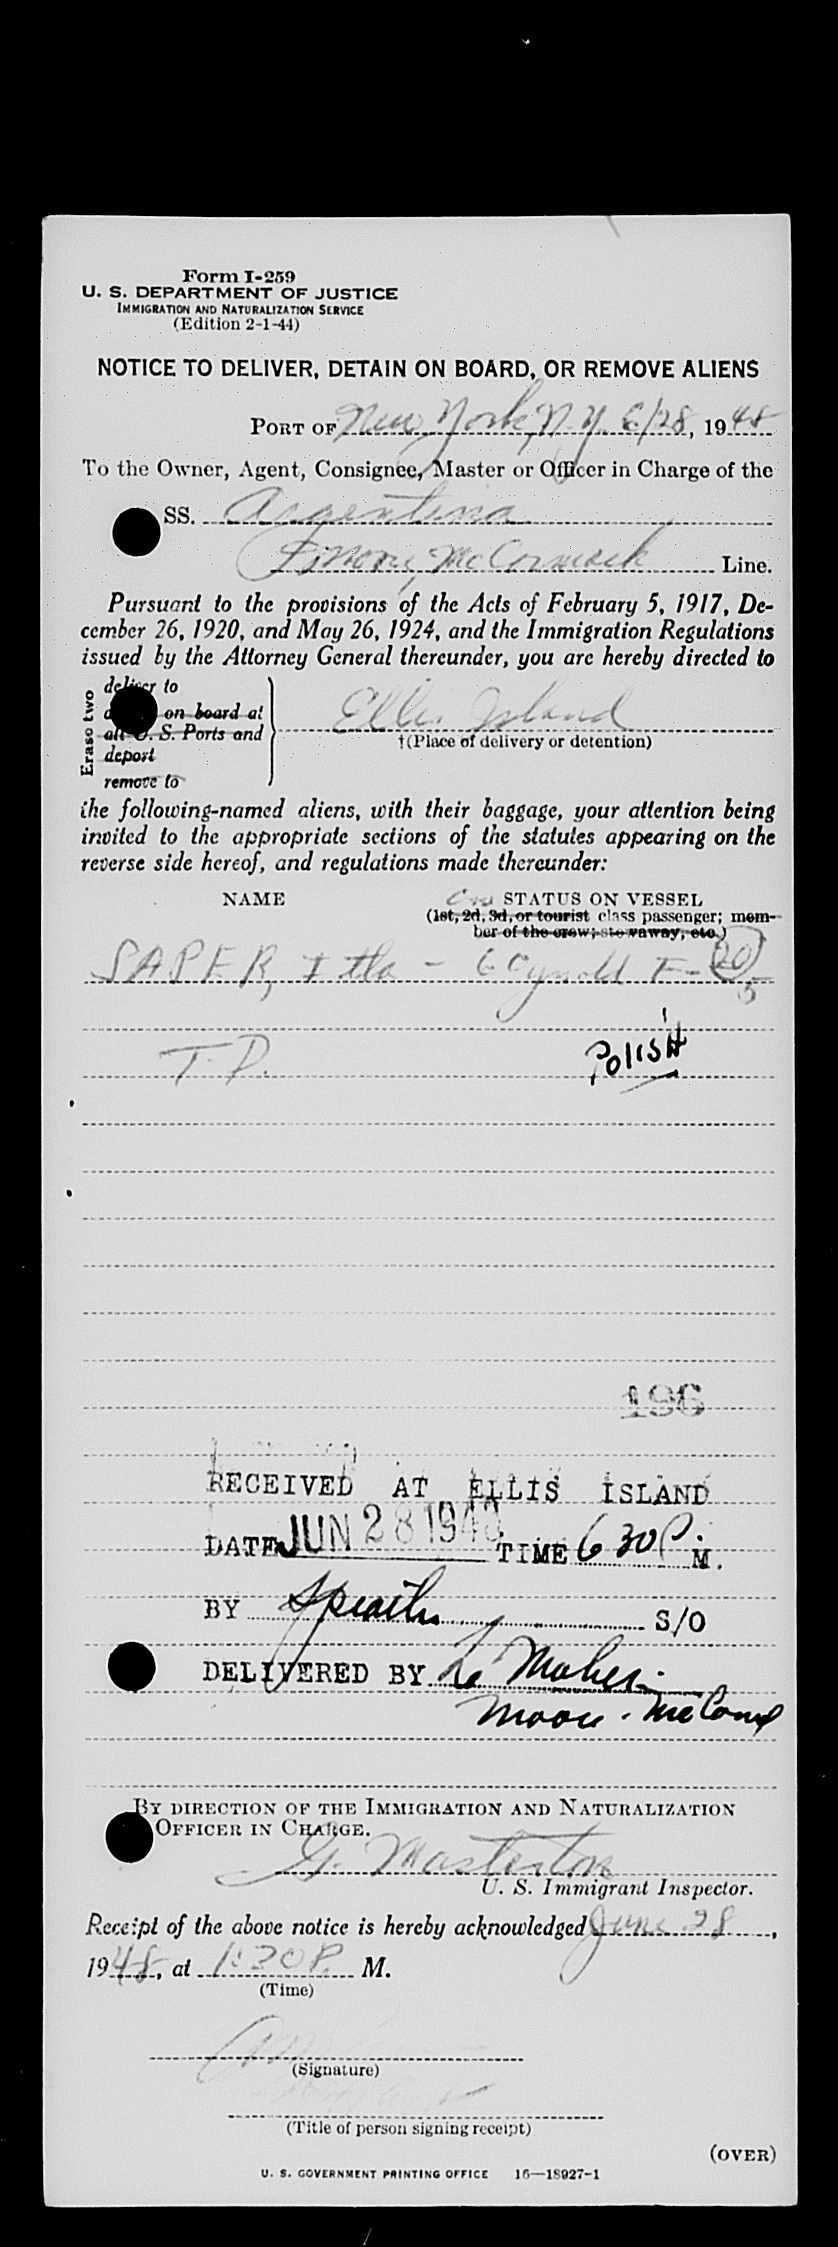 Form I-259
U. S. DEPARTMENT OF JUSTICE
IMMIGRATION AND NATURALIZATION SERVICE
(Edition 2-1-44)
NOTICE TO DELIVER, DETAIN ON BOARD, OR REMOVE ALIENS
PORT OF New York, N.Y. 6/28, 1948
To the Owner, Agent, Consignee, Master or Officer in Charge of the
SS. Argentina
McCormack Line.
Pursuant to the provisions of the Acts of February 5, 1917, De-
cember 26, 1920, and May 26, 1924, and the Immigration Regulations
issued by the Attorney General thereunder, you are hereby directed to
Erase two
deliver to
on board at
all U. S. Ports and
deport
remove to
Ellis Island
†(Place of delivery or detention)
the following-named aliens, with their baggage, your attention being
invited to the appropriate sections of the statutes appearing on the
reverse side hereof, and regulations made thereunder:
NAME
STATUS ON VESSEL
(1st, 2d, 3d, or tourist class passenger; mem-
ber of the crew; stowaway, etc.)
SAPER, Itla - 6 F- 20
5
T. D.
POLISH
196
RECEIVED AT ELLIS ISLAND
DATE JUN 28 1948 TIME 6 30 P. M.
BY S/O
DELIVERED BY
Moore-McCorm
BY DIRECTION OF THE IMMIGRATION AND NATURALIZATION
OFFICER IN CHARGE.
G. Masterton
U. S. Immigrant Inspector.
Receipt of the above notice is hereby acknowledged June 28,
1948, at 1:30 P. M.
(Time)
(Signature)
(Title of person signing receipt)
(OVER)
U. S. GOVERNMENT PRINTING OFFICE 16—18927-1